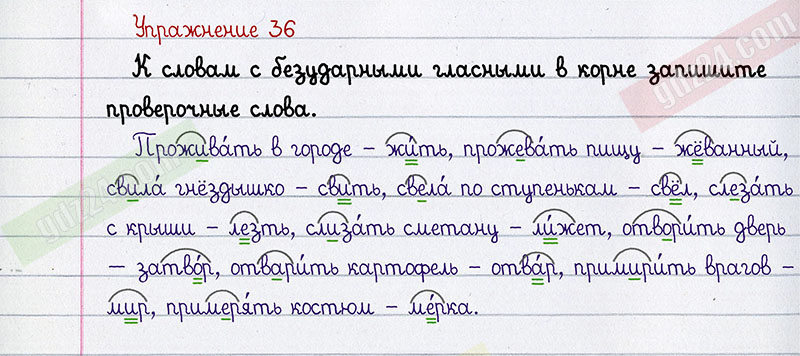 Упражнение 36
К словам с безударными гласными в корне запишите
проверочные слова.
Прожива́ть в городе – жи́ть, прожева́ть пищу – жёванный,
свила́ гнёздышко – сви́ть, свела́ по ступенькам – свёл, слеза́ть
с крыши – лезть, слиза́ть сметану – ли́жет, отвори́ть дверь
– затво́р, отвари́ть картофель – отва́р, примири́ть врагов –
мир, примеря́ть костюм – ме́рка.
gdz24.com
gdz24.com